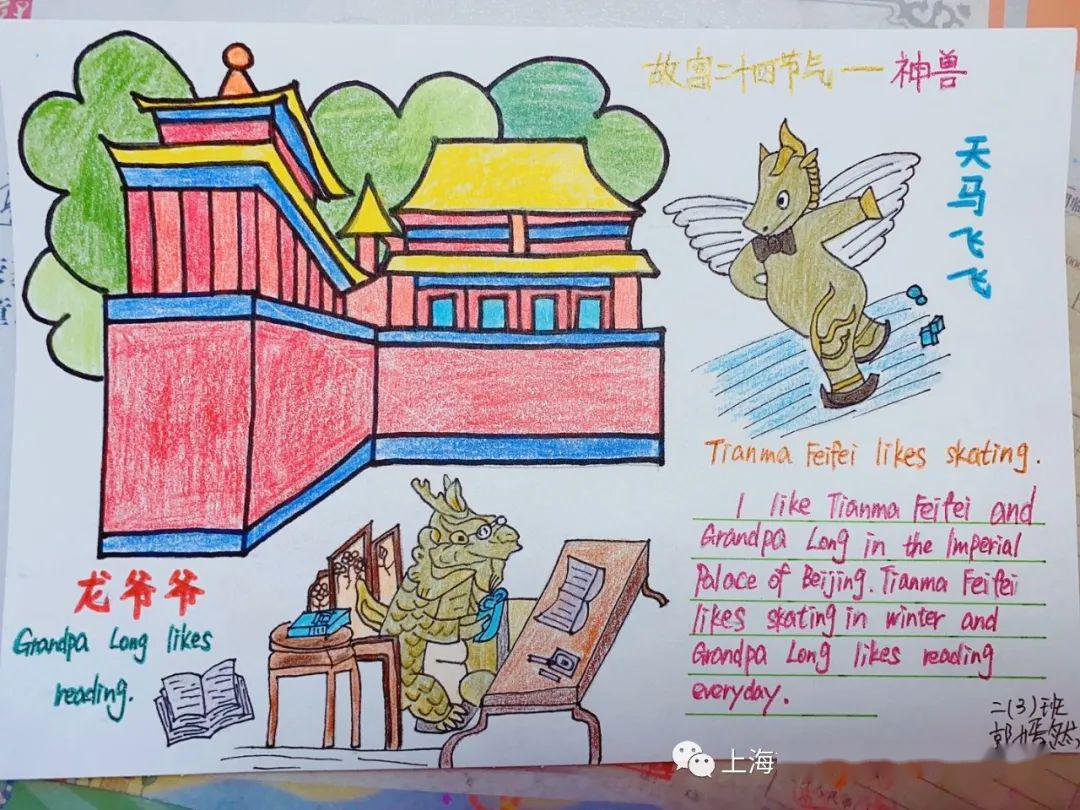 故宫二十四节气一神兽
天马飞飞
Tianma Feifei likes skating.
I like Tianma Feifei and
Grandpa Long in the Imperial
Palace of Beijing. Tianma Feifei
likes skating in winter and
Grandpa Long likes reading
everyday.
龙爷爷
Grandpa Long likes
reading.
二(3)班
上海